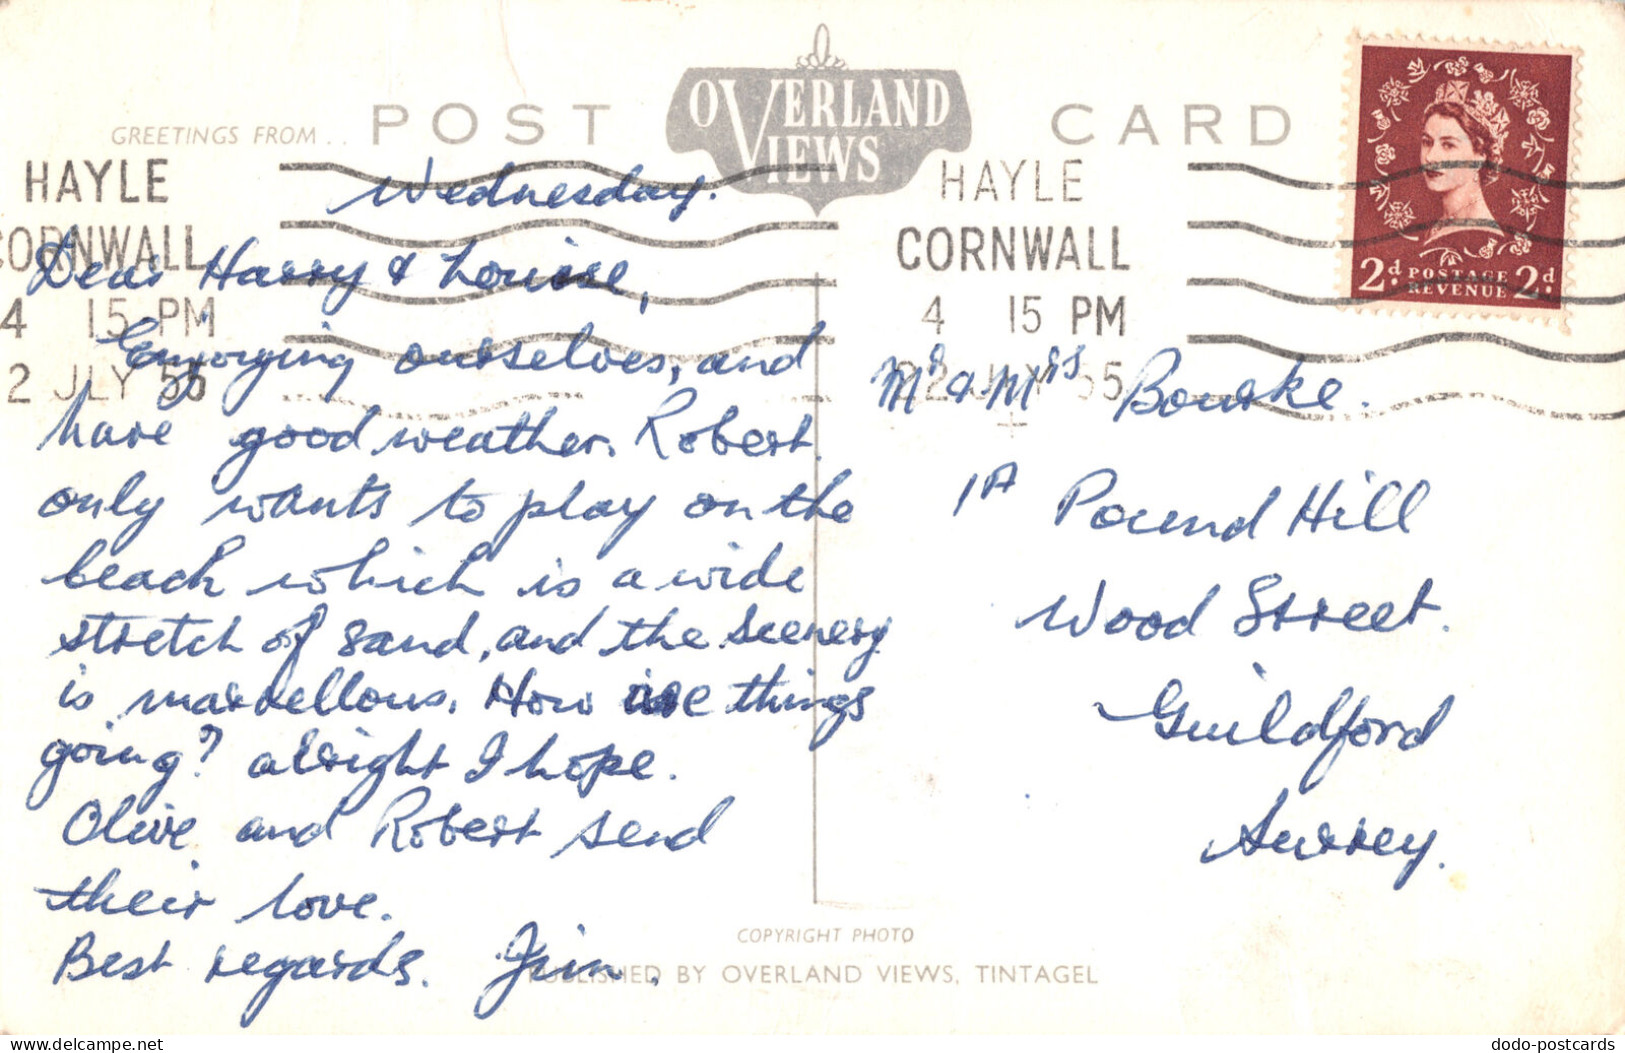 GREETINGS FROM..
POST
OVERLAND
VIEWS
CARD
HAYLE
CORNWALL
4 15 PM
2 JLY 55
HAYLE
CORNWALL
4 15 PM
2 JLY 55
2d. POSTAGE 2d.
REVENUE
Wednesday.
Dear Harry & Louise,
Enjoying ourselves, and
have good weather. Robert
only wants to play on the
beach which is a wide
stretch of sand, and the scenery
is marvellous. How are things
going? alright I hope.
Olive and Robert send
their love.
Best regards. Jim.
Mr & Mrs Bourke.
1A Pound Hill
Wood Street.
Guildford
Surrey.
COPYRIGHT PHOTO
PUBLISHED BY OVERLAND VIEWS, TINTAGEL
www.delcampe.net
dodo-postcards